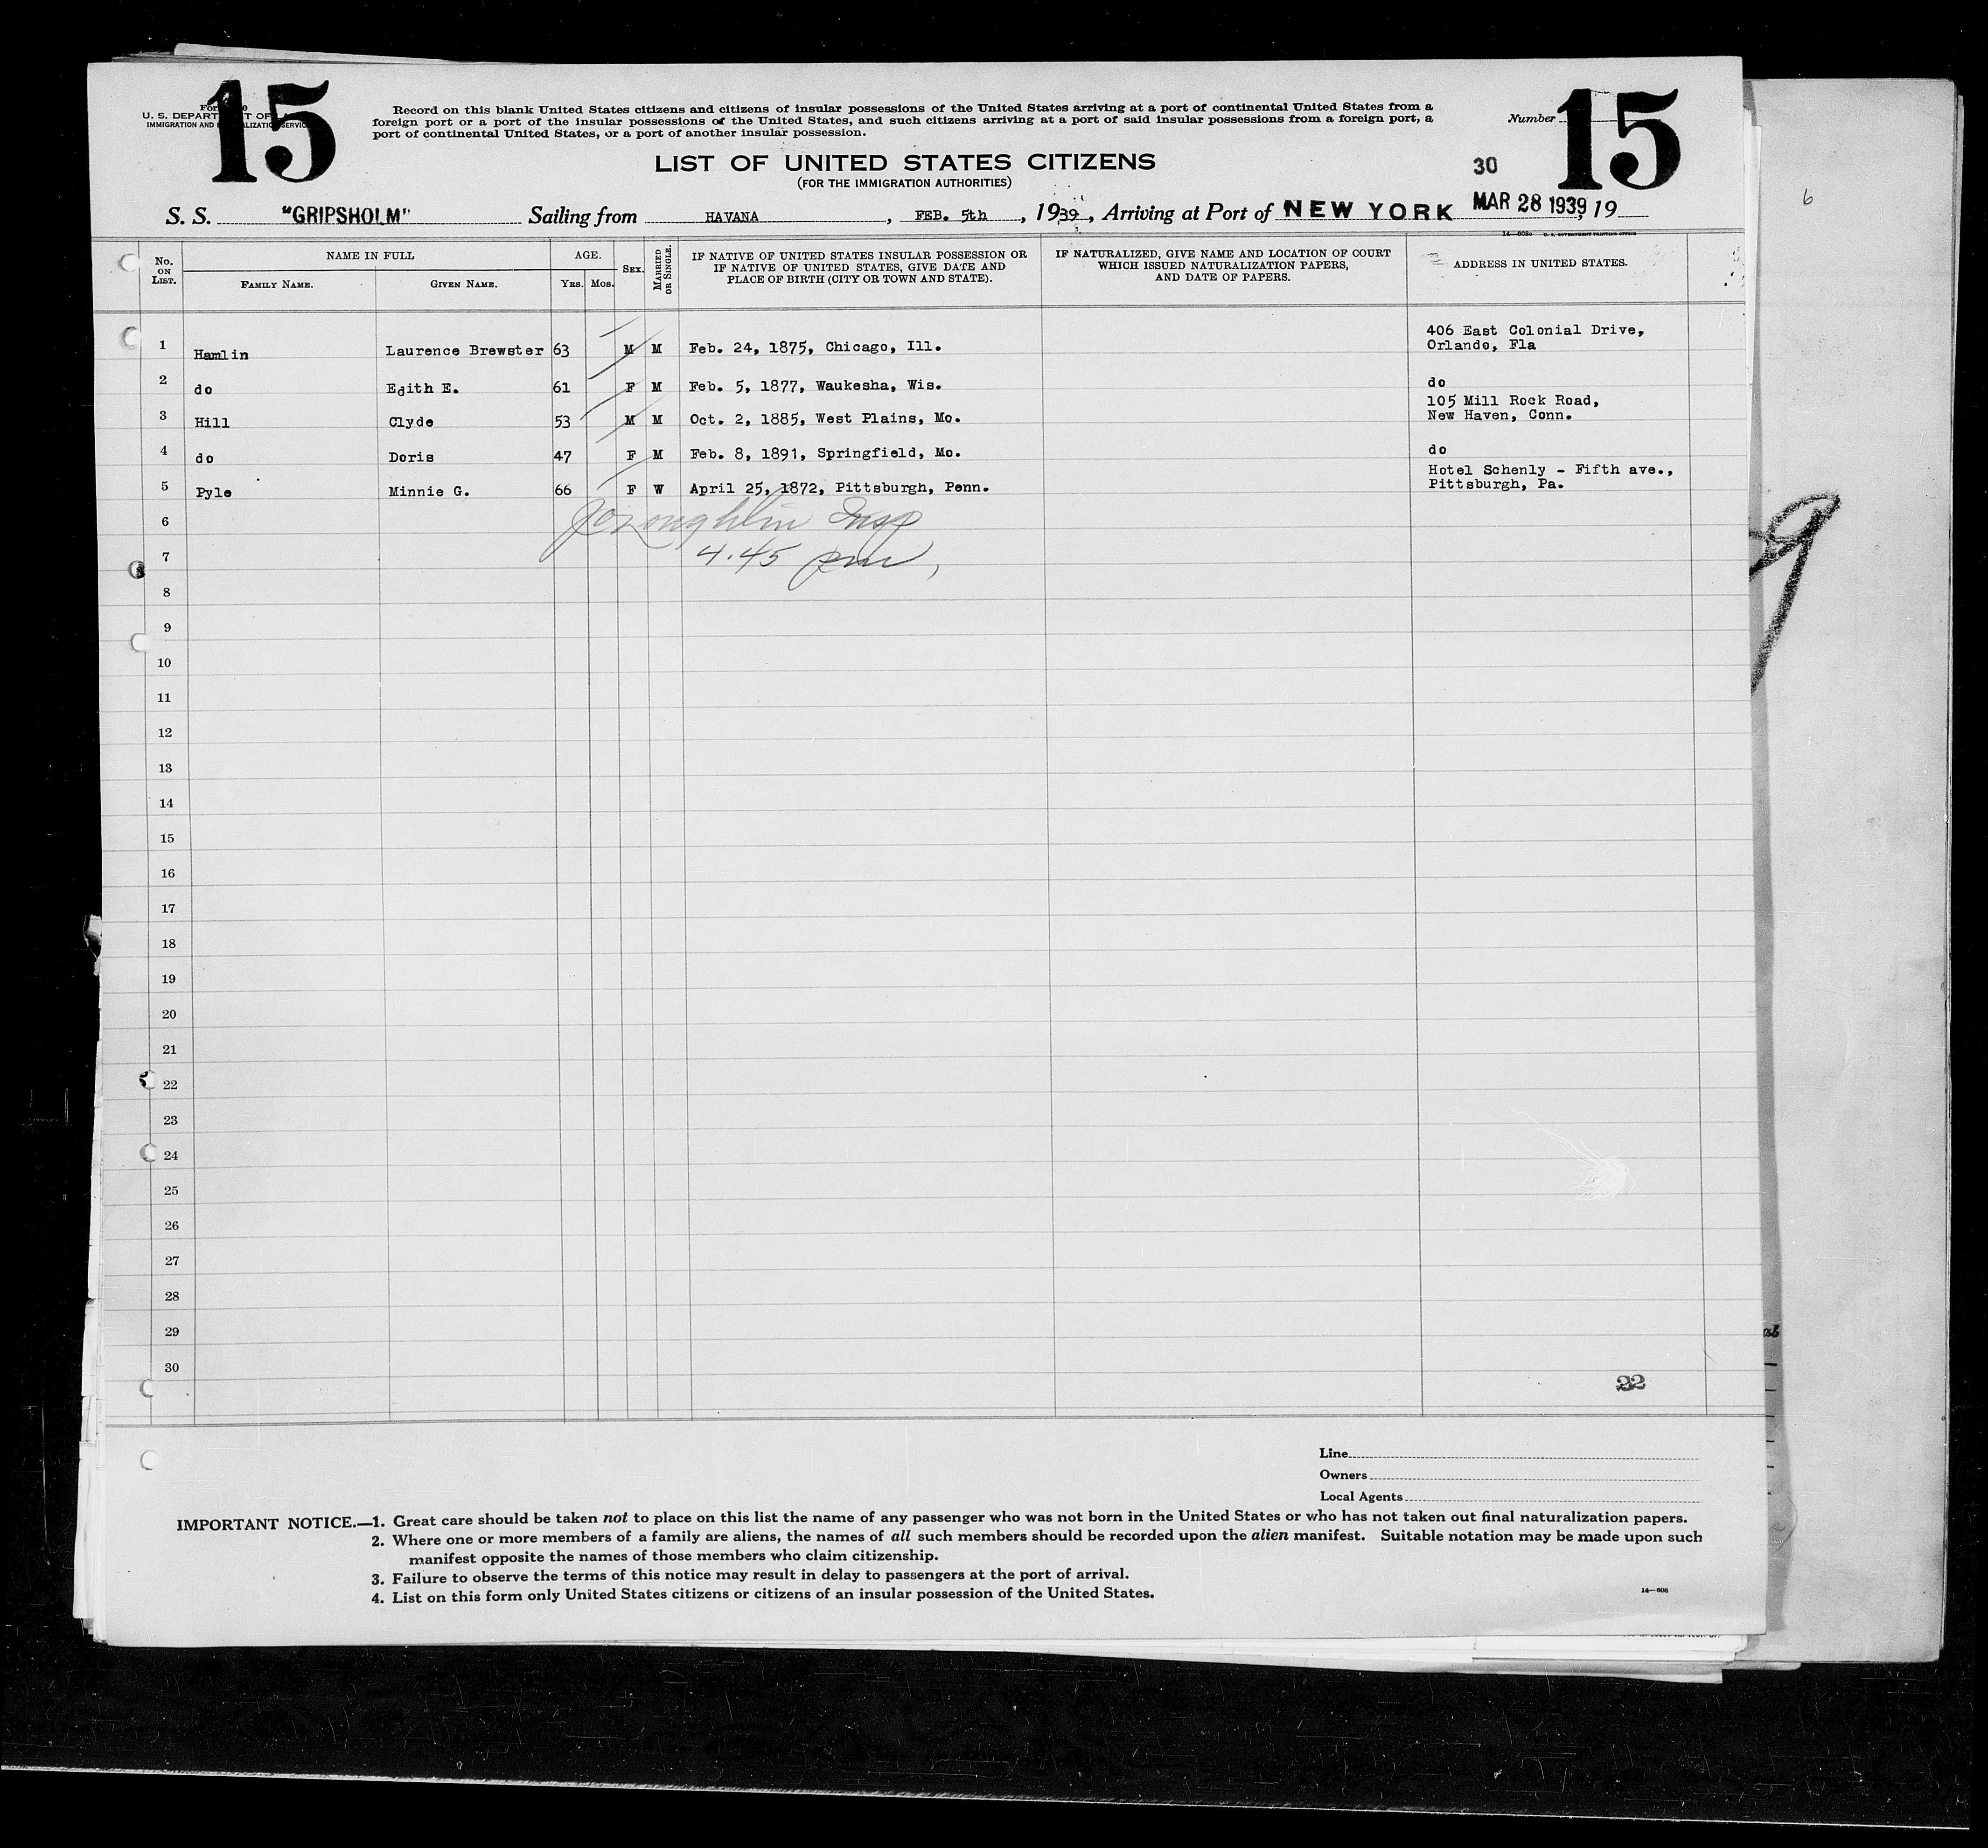 15
15
U. S. DEPARTMENT OF
IMMIGRATION AND NATURALIZATION SERVICE
Record on this blank United States citizens and citizens of insular possessions of the United States arriving at a port of continental United States from a
foreign port or a port of the insular possessions of the United States, and such citizens arriving at a port of said insular possessions from a foreign port, a
port of continental United States, or a port of another insular possession.
Number
LIST OF UNITED STATES CITIZENS
(FOR THE IMMIGRATION AUTHORITIES)
30
S. S. "GRIPSHOLM" Sailing from HAVANA, FEB. 5th, 1939, Arriving at Port of NEW YORK MAR 28 1939, 19
No. ON LIST. NAME IN FULL AGE. SEX. MARRIED OR SINGLE. IF NATIVE OF UNITED STATES INSULAR POSSESSION OR IF NATIVE OF UNITED STATES, GIVE DATE AND PLACE OF BIRTH (CITY OR TOWN AND STATE). IF NATURALIZED, GIVE NAME AND LOCATION OF COURT WHICH ISSUED NATURALIZATION PAPERS, AND DATE OF PAPERS. ADDRESS IN UNITED STATES.
FAMILY NAME. GIVEN NAME. YRS. MOS.
1 Hamlin Laurence Brewster 63 M M Feb. 24, 1875, Chicago, Ill. 406 East Colonial Drive, Orlando, Fla
2 do Edith E. 61 F M Feb. 5, 1877, Waukesha, Wis. do
3 Hill Clyde 53 M M Oct. 2, 1885, West Plains, Mo. 105 Mill Rock Road, New Haven, Conn.
4 do Doris 47 F M Feb. 8, 1891, Springfield, Mo. do
5 Pyle Minnie G. 66 F W April 25, 1872, Pittsburgh, Penn. Hotel Schenly - Fifth ave., Pittsburgh, Pa.
6 Insp
7 4.45 pm,
8
9
10
11
12
13
14
15
16
17
18
19
20
21
22
23
24
25
26
27
28
29
30
22
Line
Owners
Local Agents
IMPORTANT NOTICE.—1. Great care should be taken not to place on this list the name of any passenger who was not born in the United States or who has not taken out final naturalization papers.
2. Where one or more members of a family are aliens, the names of all such members should be recorded upon the alien manifest. Suitable notation may be made upon such
manifest opposite the names of those members who claim citizenship.
3. Failure to observe the terms of this notice may result in delay to passengers at the port of arrival.
4. List on this form only United States citizens or citizens of an insular possession of the United States.
14—606
6